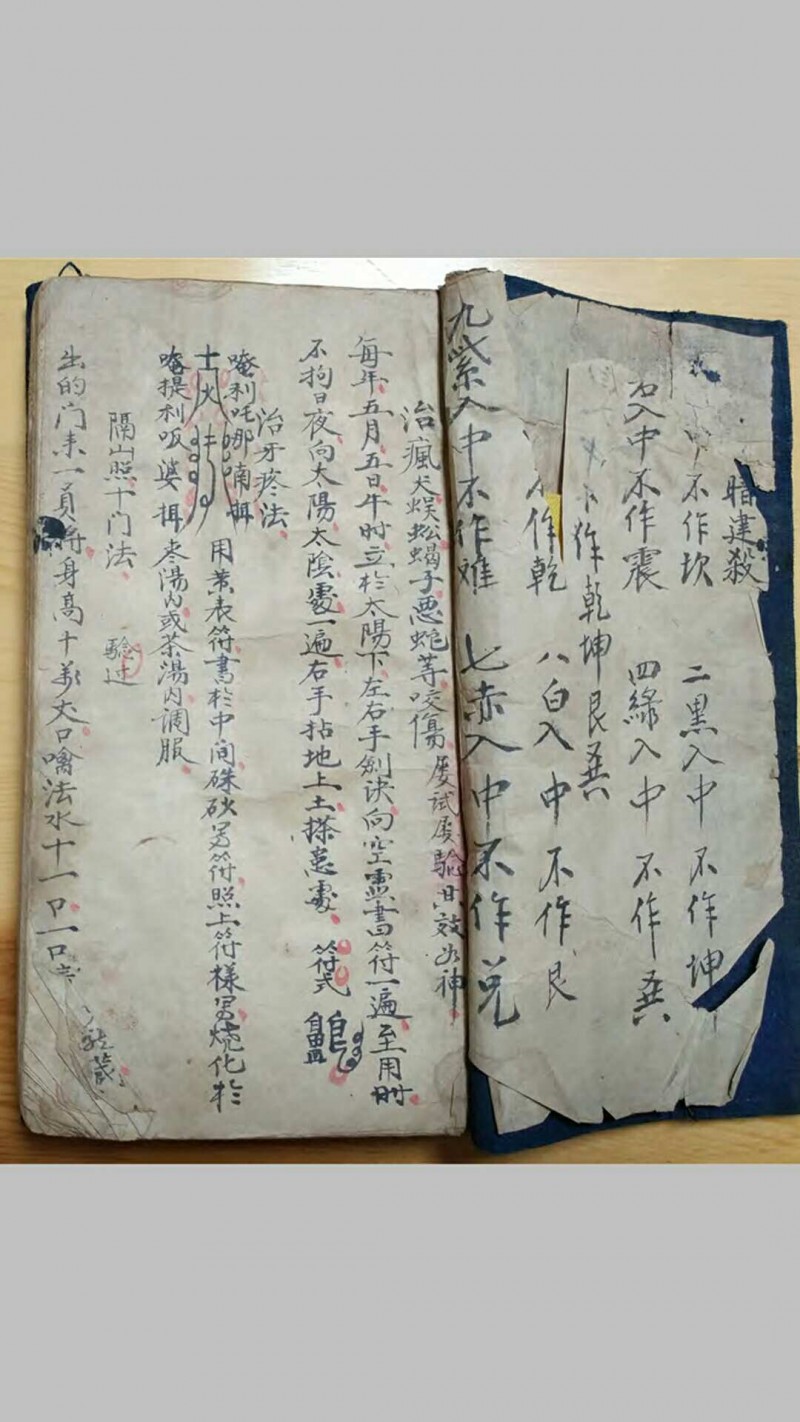 暗建殺
不作坎 二黑入中 不作坤
入中不作震 四綠入中 不作巽
作乾坤艮巽
作乾 八白入中 不作艮
九紫入中不作離 七赤入中不作兌
治瘋犬蜈蚣蝎子惡蛇等咬傷 屢試屢驗 其效如神
每年五月五日午時立於太陽下左右手劍訣向空虛書四符一遍至用時
不拘日夜向太陽太陰處一遍右手拈地上土搽患處 符式
治牙疼法
唵利吒那喃
用黃表符書於中间硃砂写符照上符樣写燒化於
唵提利 婆 棗湯內或茶湯內調服
隔山照十门法 驗过
出的门来一員將身高十丈大口噙法水十一口一口